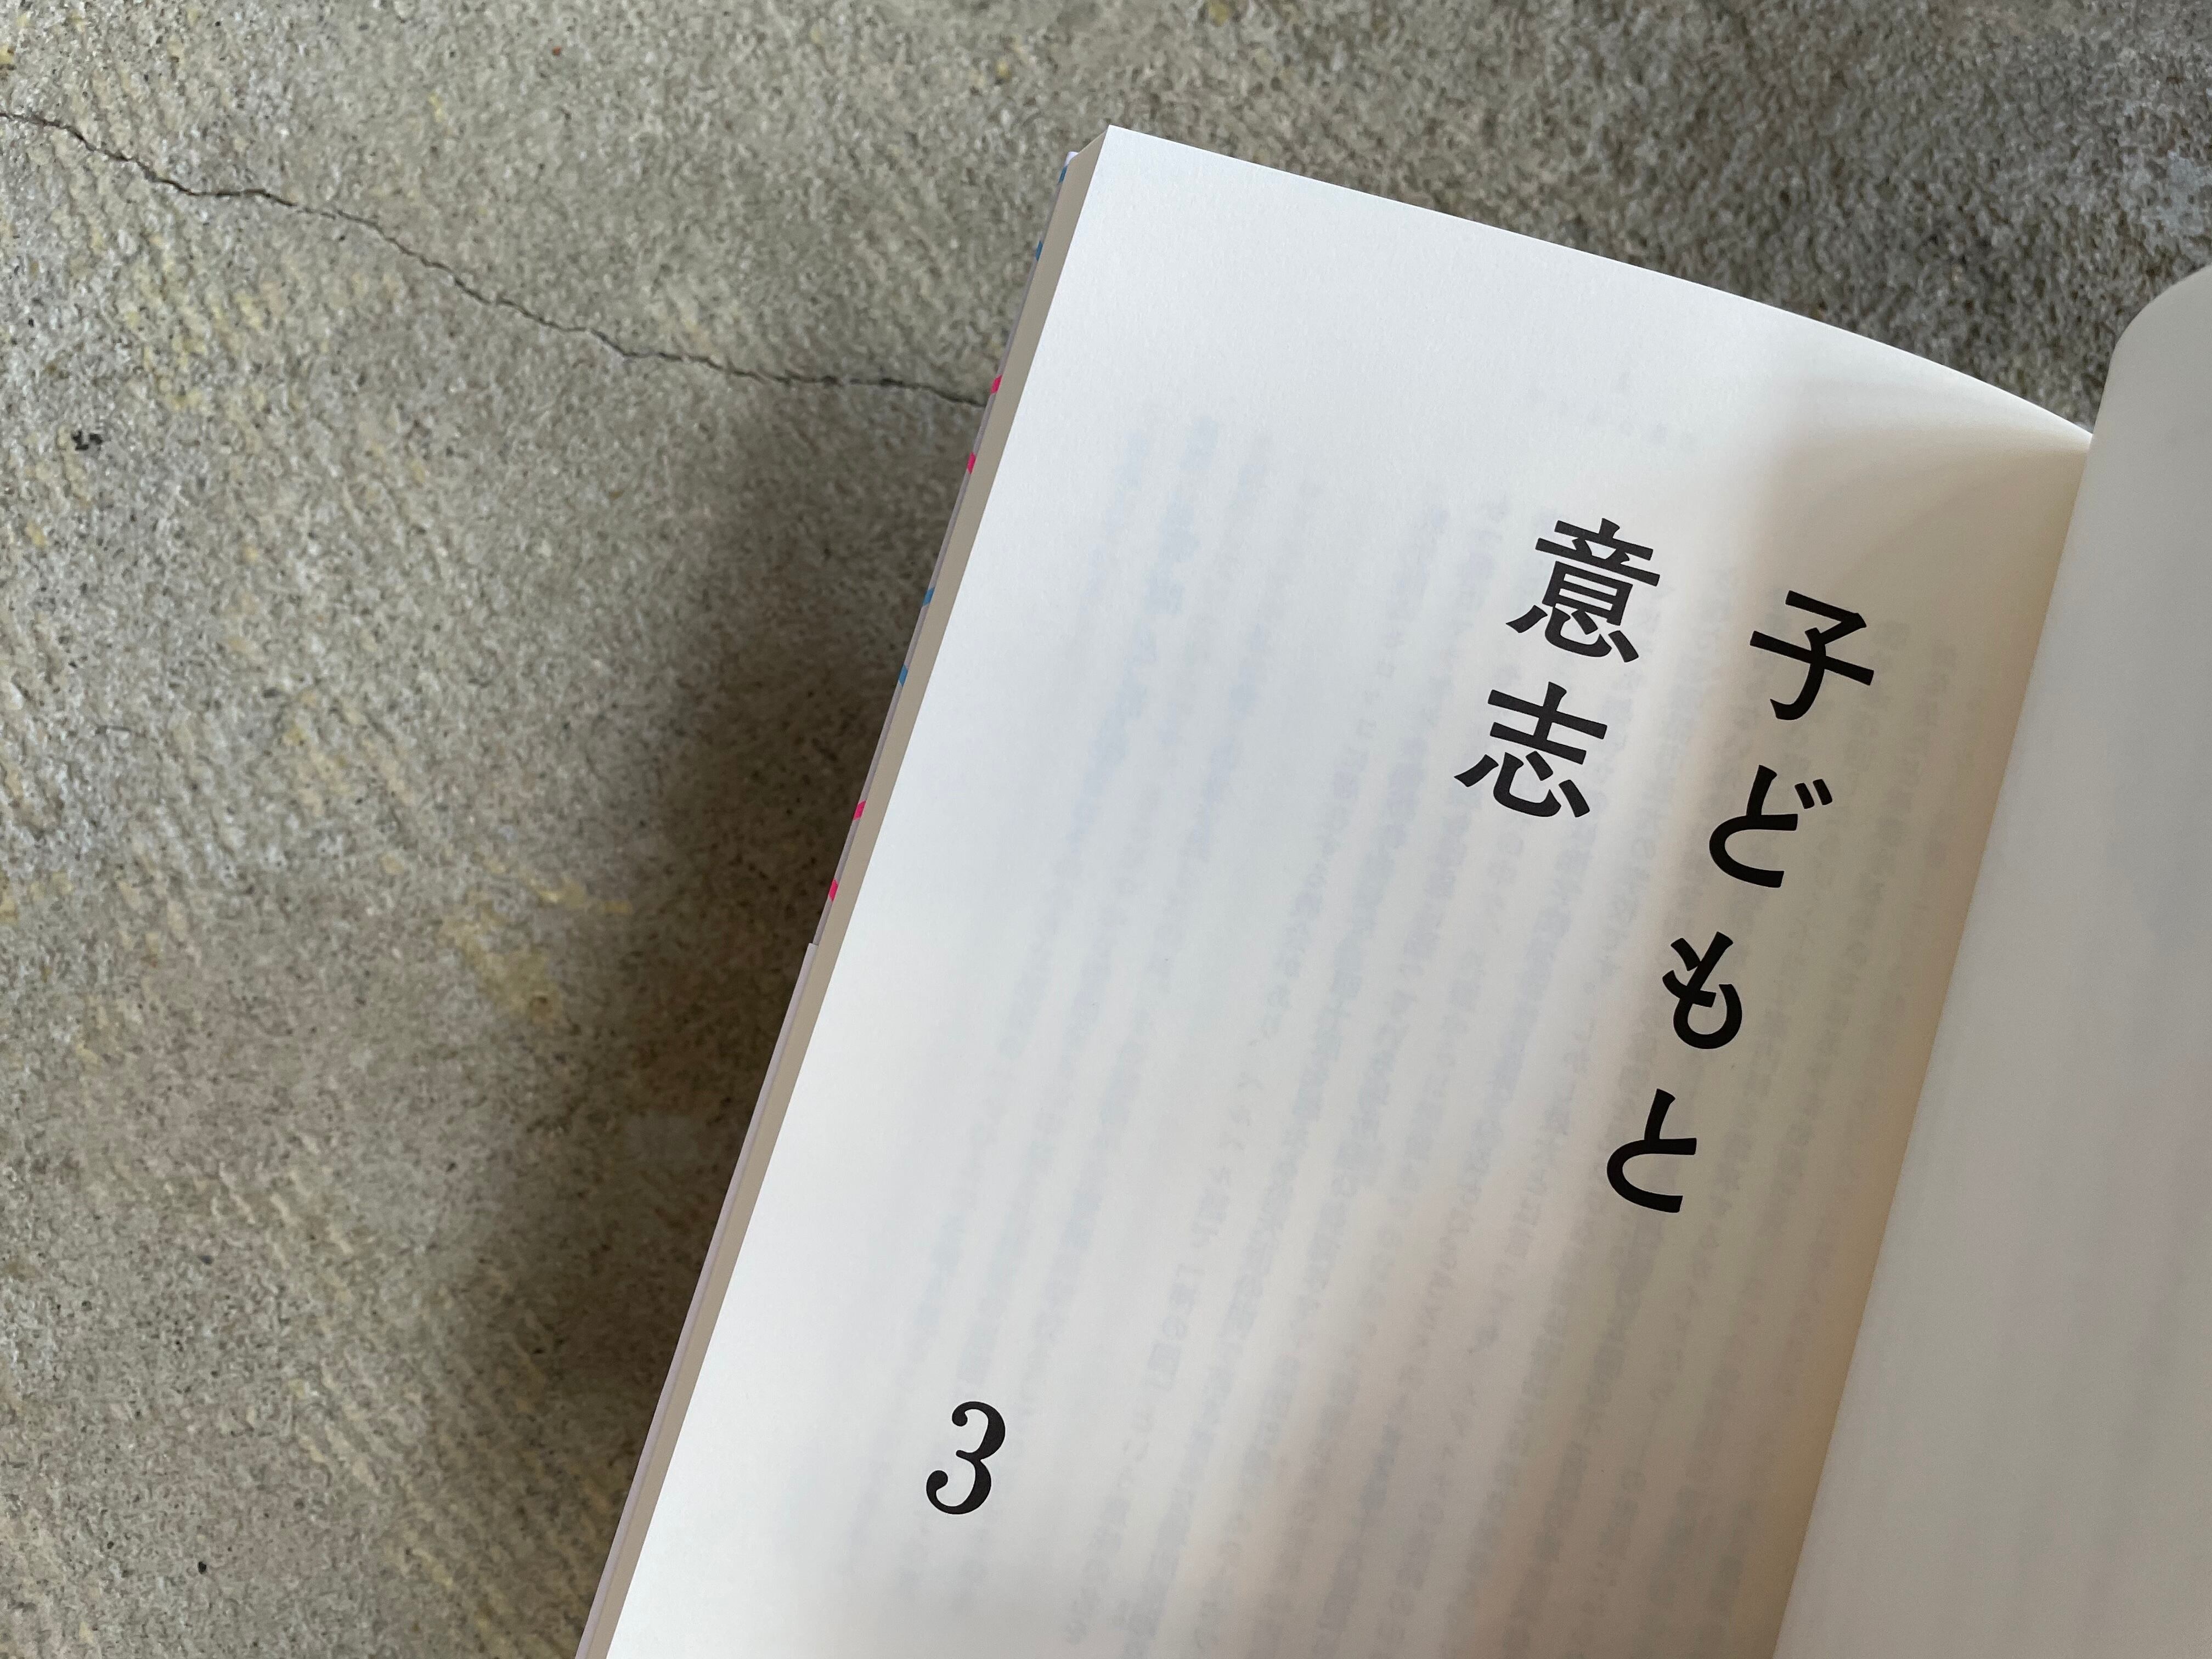 子どもと
意志
3